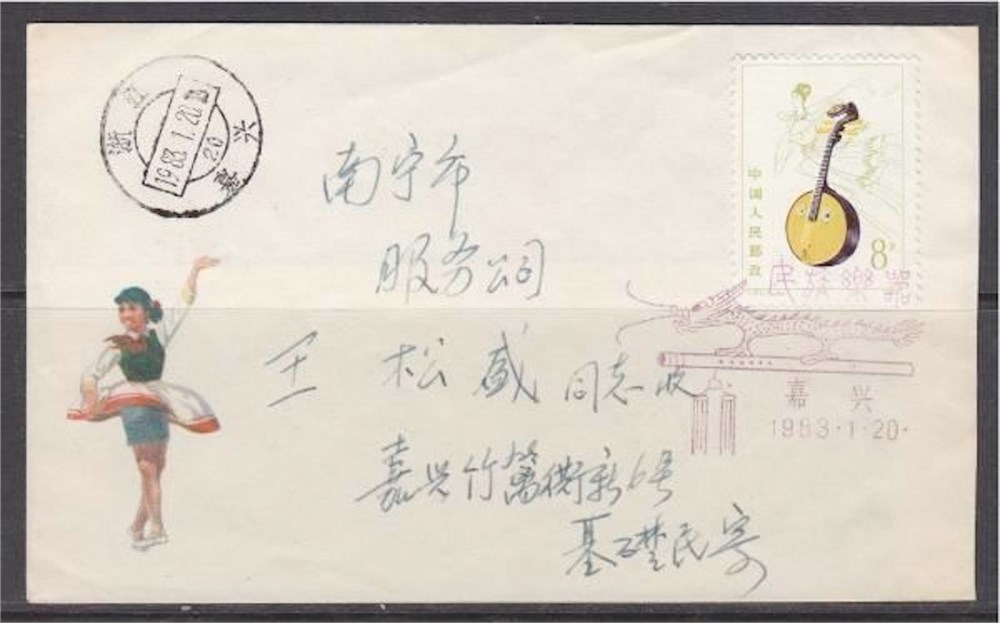 浙江
1983.1.20
20
嘉兴
中国人民邮政
8分
民族樂器
嘉兴
1983·1·20·
南宁市
服务公司
王松盛同志收
嘉兴竹篱衖新6号
基礎民寄